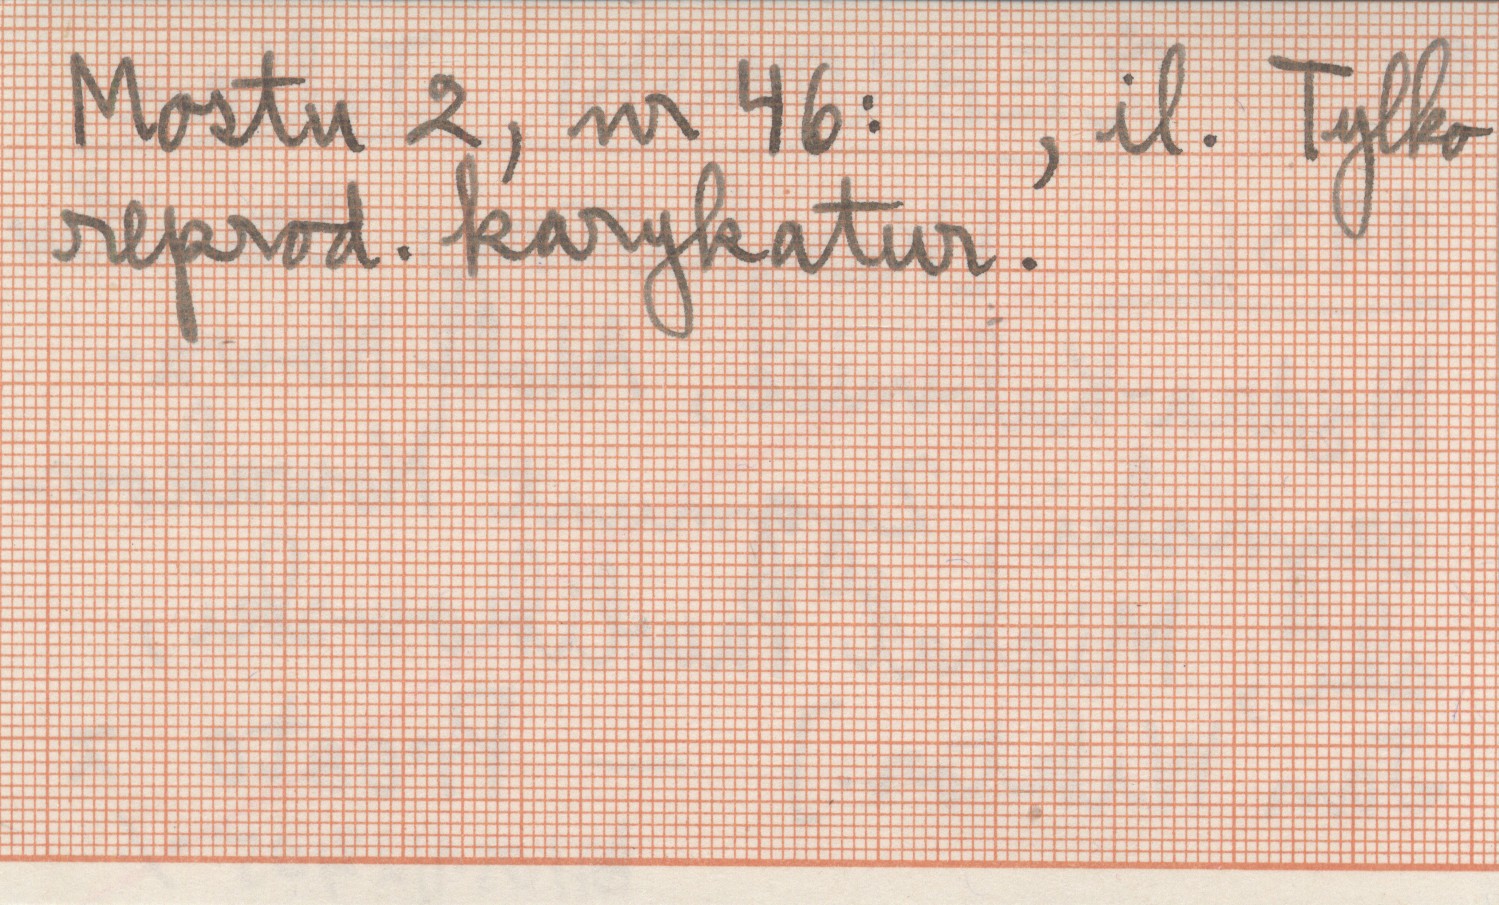 Mostu 2, nr 46: , il. Tylko
reprod. karykatur.